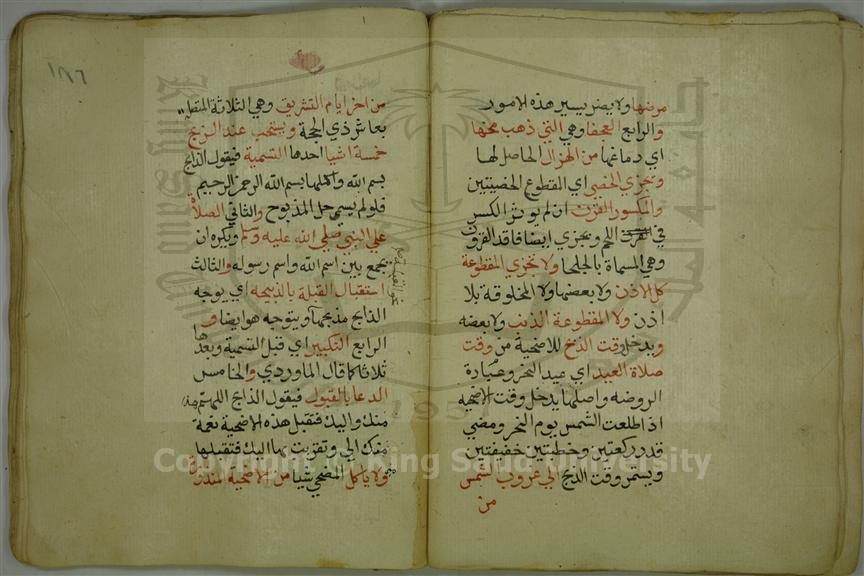 مرضها ولا يضر يسير هذه الامور
والرابع العجفا وهي التي ذهب مخها
اي دماغها من الهزال الحاصل لها
وتجزي الخصي اي المقطوع الخصيتين
والمكسور القرن ان لم يوثر الكسر
في اللحم ويجزي ايضا فاقد القرون
وهي المسماة بالجلحا ولا تجزي المقطوعة
كل الاذن ولا بعضها ولا المخلوقة بلا
اذن ولا المقطوعة الذنب ولا بعضه
ويدخل وقت الذبح للاضحية من وقت
صلاة العيد اي عيد النحر وعبارة
الروضه واصلها يدخل وقت الاضحيه
اذا طلعت الشمس يوم النحر ومضي
قدر ركعتين وخطبتين خفيفتين
ويستمر وقت الذبح الي غروب الشمس
من
١٨٦
من اخر ايام التشريق وهي الثلاثة المتصلة
بعاشر ذي الحجة ويستحب عند الذبح
خمسة اشيا احدها التسمية فيقول الذابح
بسم الله واكملها بسم الله الرحمن الرحيم
فلو لم يسم حل المذبوح والثاني الصلاة
علي النبي صلي الله عليه وسلم ويكره ان
يجمع بين اسم الله واسم رسوله والثالث
استقبال القبلة بالذبيحه اي يوجه
الذابح مذبحها ويتوجه هو ايضا و
الرابع التكبير اي قبل التسمية وبعدها
ثلاثا كما قال الماوردي والخامس
الدعا بالقبول فيقول الذابح اللهم هذه
منك واليك فتقبل هذه الاضحية نعمة
منك الي وتقربت بها اليك فتقبلها
ولا ياكل المضحي شيا من الاضحية المنذرة
Copyright © King Saud University
1957